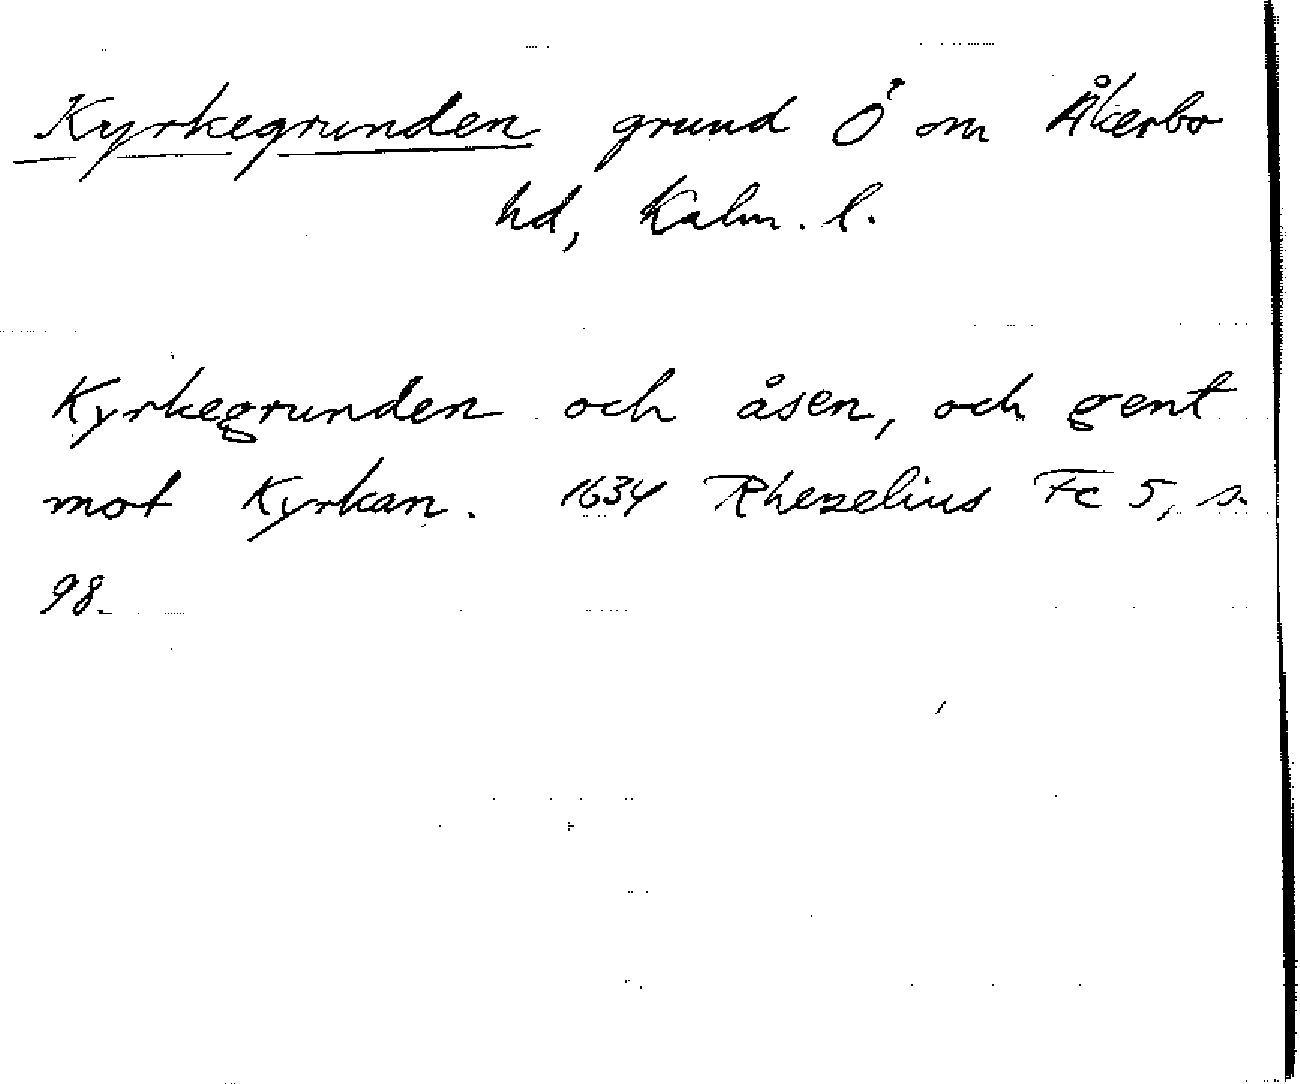 Kyrkegrunden grund Ö om Åkerbo
hd, Kalm. l.
Kyrkegrunden och åsen, och gent
mot Kyrkan. 1634 Rhezelius Fc 5, s.
98.